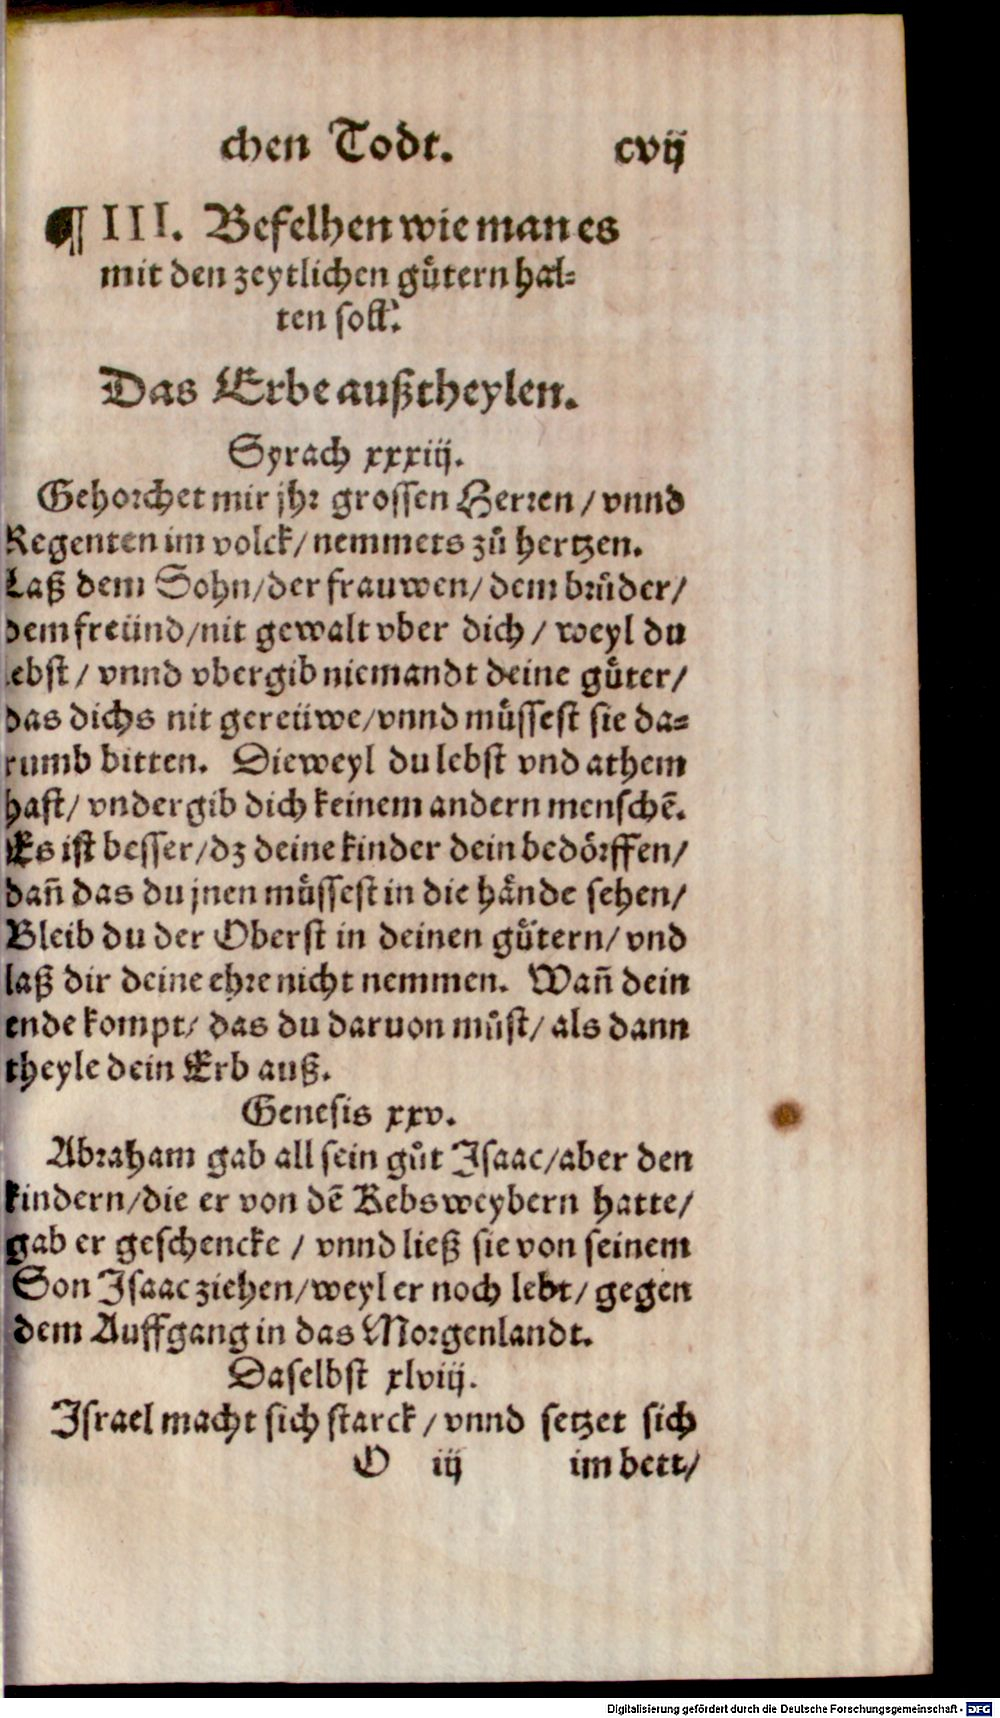 chen Todt. cvij
¶ III. Befelhen wie man es
mit den zeytlichen guͤtern hal=
ten soll.
Das Erbe außtheylen.
Syrach xxxiij.
Gehorchet mir jhr grossen Herren / vnnd
Regenten im volck / nemmets zuͦ hertzen.
Laß dem Sohn / der frauwen / dem bruͦder /
dem freünd / nit gewalt vber dich / weyl du
lebst / vnnd vbergib niemandt deine guͤter /
das dichs nit gereüwe / vnnd muͤssest sie da=
rumb bitten. Dieweyl du lebst vnd athem
hast / vndergib dich keinem andern menschē.
Es ist besser / dz deine kinder dein bedoͤrffen /
dañ das du jnen muͤssest in die haͤnde sehen /
Bleib du der Oberst in deinen guͤtern / vnd
laß dir deine ehre nicht nemmen. Wañ dein
ende kompt / das du daruon muͦst / als dann
theyle dein Erb auß.
Genesis xxv.
Abraham gab all sein guͦt Isaac / aber den
kindern / die er von dē Kebsweybern hatte /
gab er geschencke / vnnd ließ sie von seinem
Son Isaac ziehen / weyl er noch lebt / gegen
dem Auffgang in das Morgenlandt.
Daselbst xlviij.
Israel macht sich starck / vnnd setzet sich
O iij im bett /
Digitalisierung gefördert durch die Deutsche Forschungsgemeinschaft - DFG